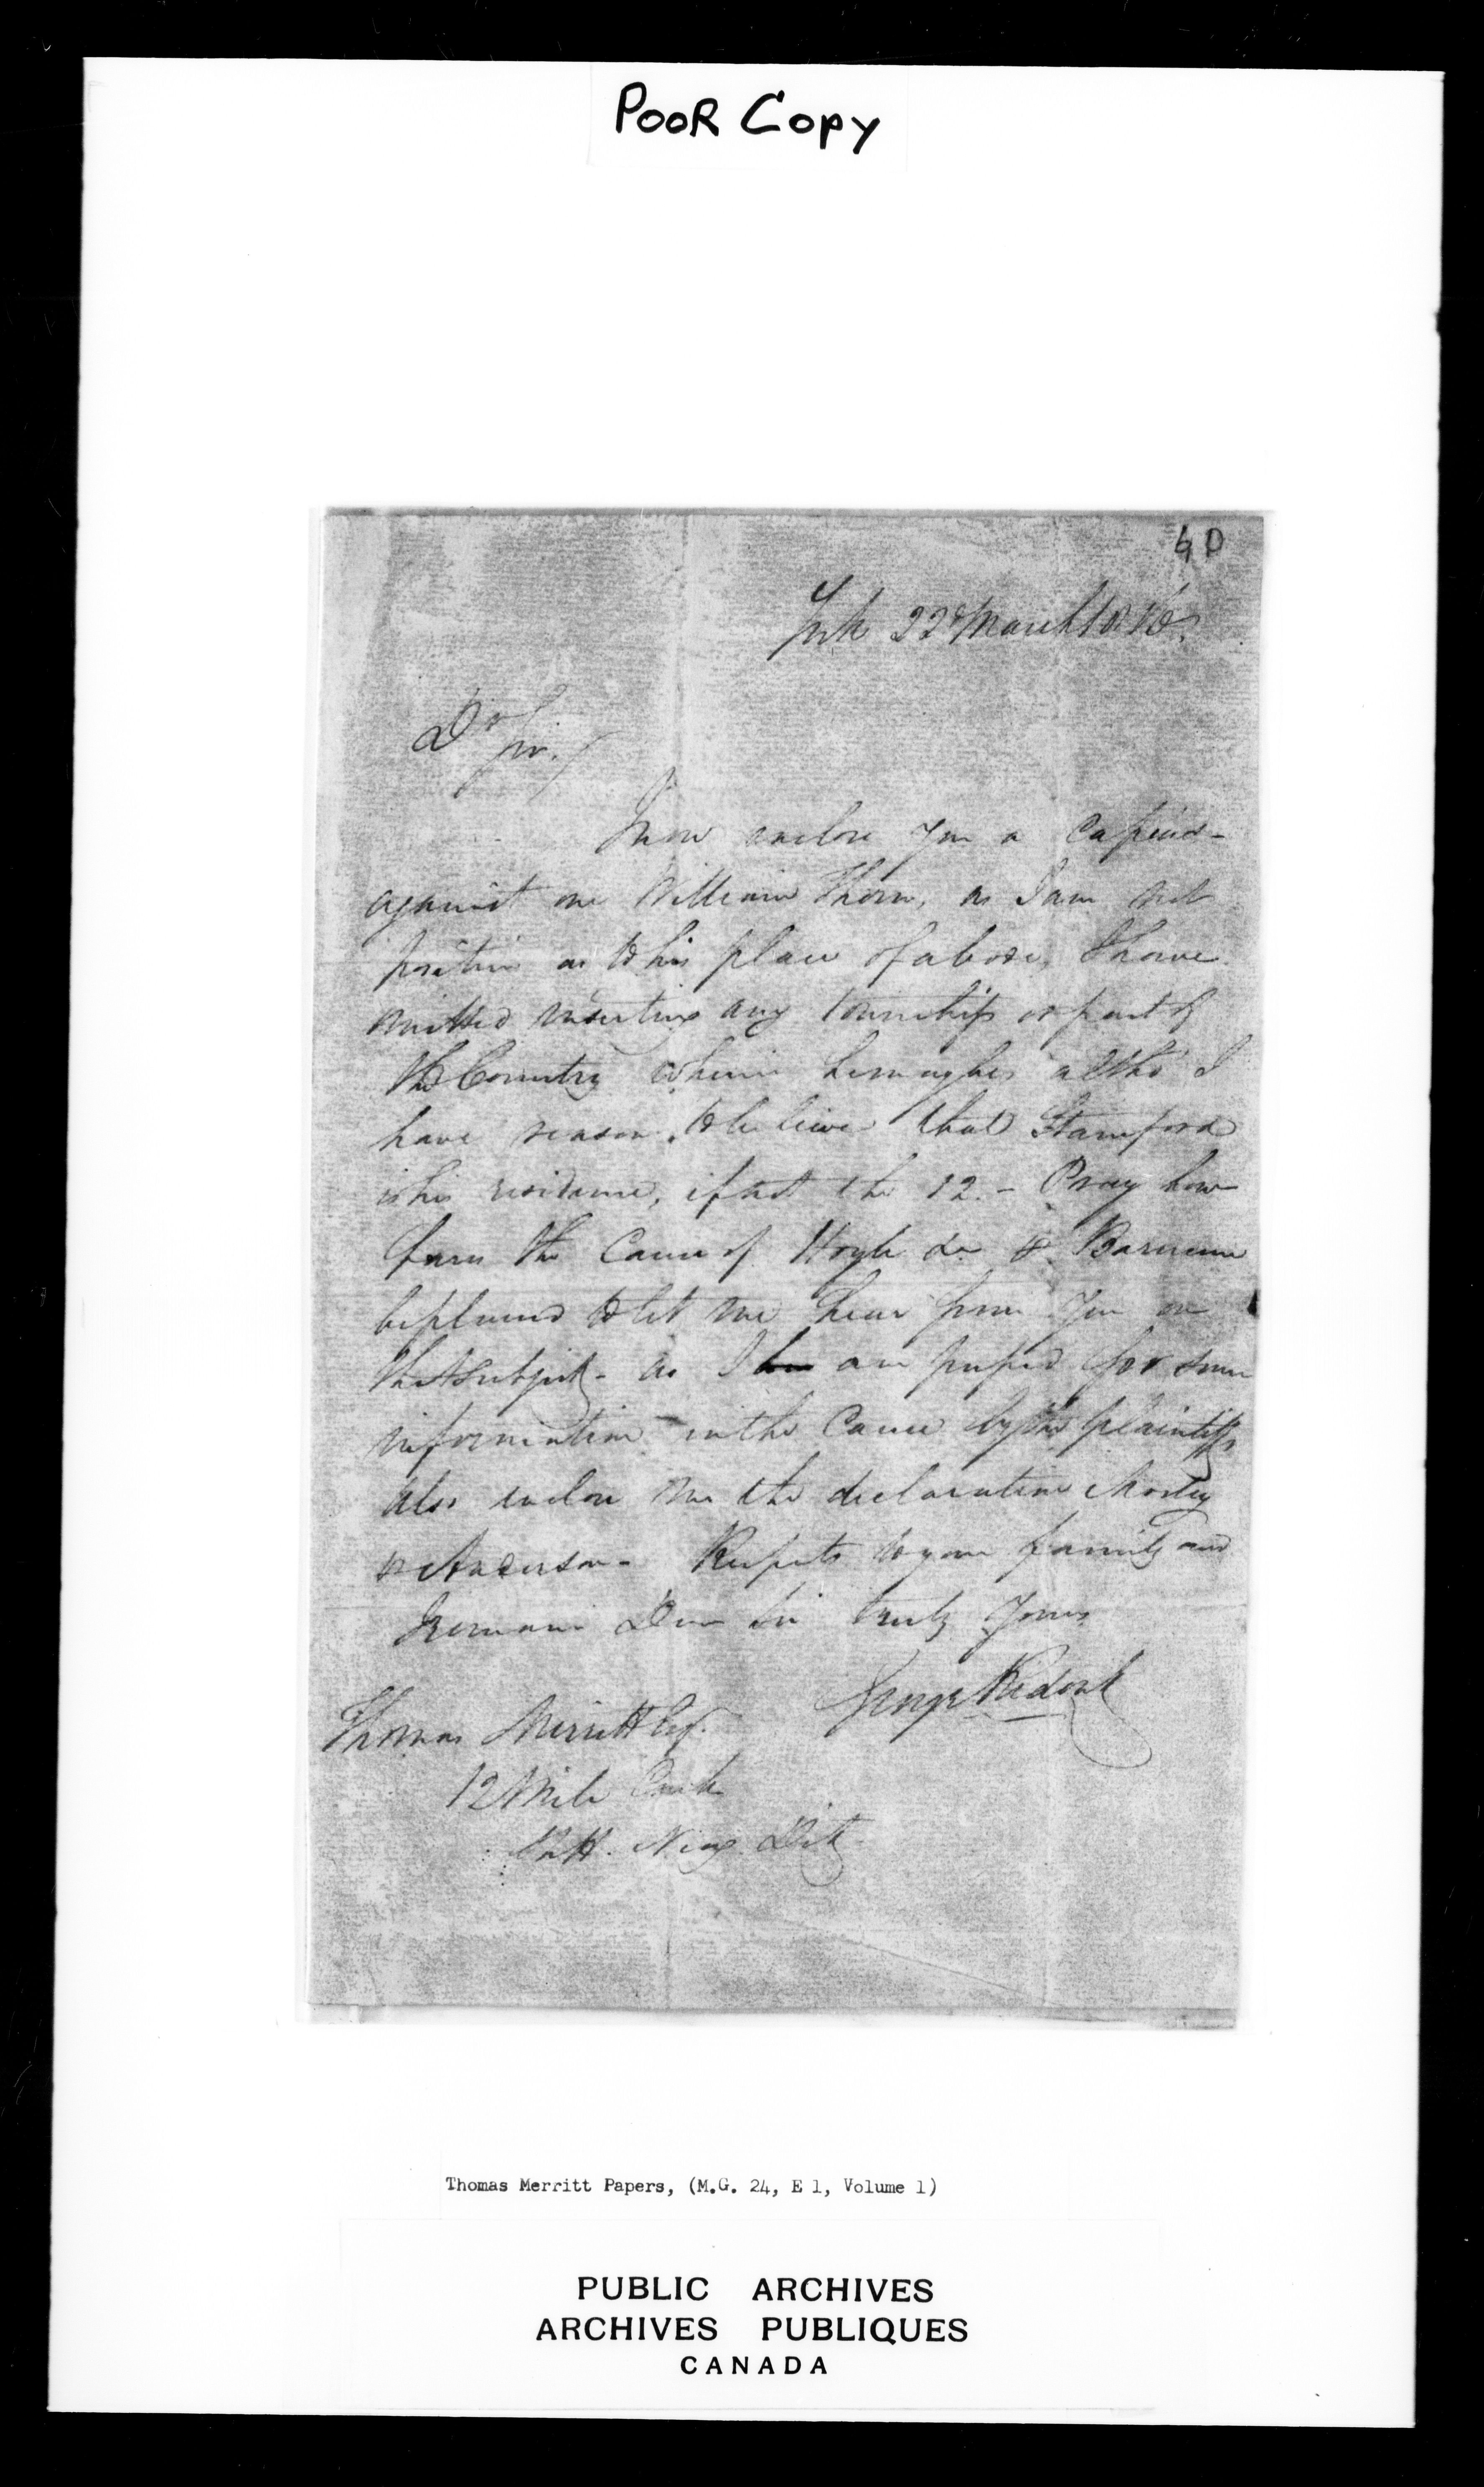 POOR Copy
40
York 22d March 1816
Dr Sir,
I now enclose you a Capias-
against one William Thorn, as I am not
positive as to his place of abode, I have
omitted inserting any township or part of
the Country wherein he might be, altho' I
have reason to believe that Stamford
is his residence, if not the 12. - Pray how
fares the Cause of Hoyle &c vs
be pleased to let me hear from you on
that subject - as I am pressed for some
information in the Cause by the plaintiffs
also enclose me the declaration
vs Anderson - Respects to your family and
I remain Dear Sir truly yours
George Ridout
Thomas Merritt Esqr.
12 Mile Creek
Niag. Dist.
Thomas Merritt Papers, (M.G. 24, E 1, Volume 1)
PUBLIC ARCHIVES
ARCHIVES PUBLIQUES
CANADA